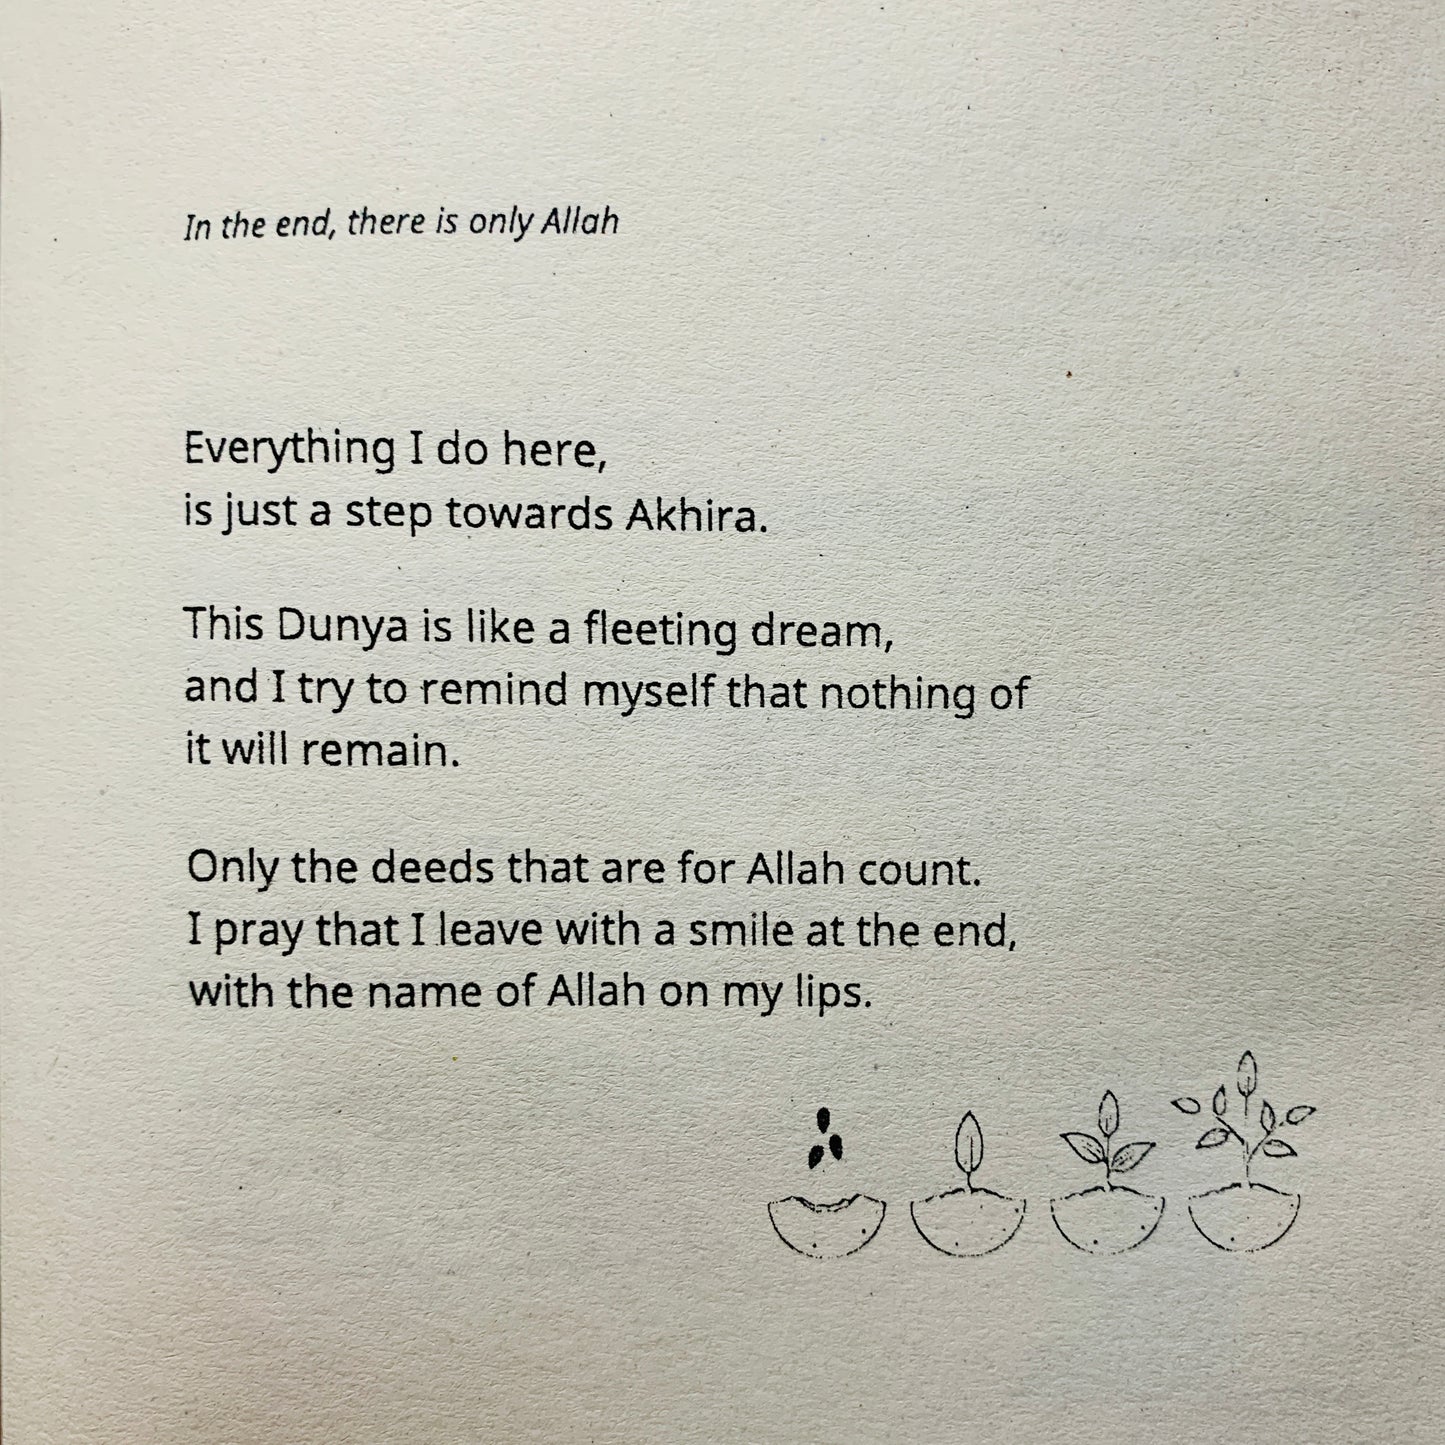 In the end, there is only Allah
Everything I do here,
is just a step towards Akhira.
This Dunya is like a fleeting dream,
and I try to remind myself that nothing of
it will remain.
Only the deeds that are for Allah count.
I pray that I leave with a smile at the end,
with the name of Allah on my lips.